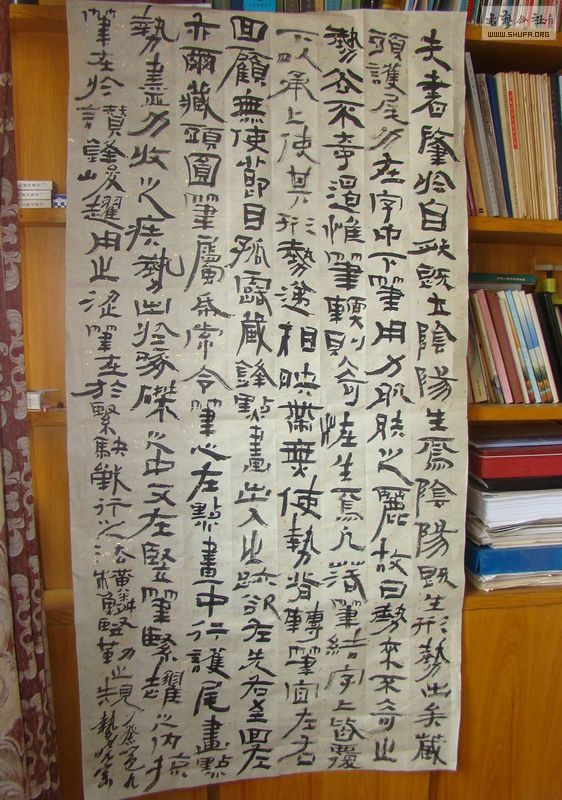 書藝公社
WWW.SHUFA.ORG
夫書肇於自然既立陰陽生焉陰陽既生形勢出矣藏
頭護尾力在字中下筆用力肌膚之麗故曰勢來不可止
勢去不可遏惟筆軟則奇怪生焉凡落筆結字上皆覆
下以承上使其形勢遞相映帶無使勢背轉筆宜左右
回顧無使節目孤露藏鋒點畫出入之跡欲左先右至回左
亦爾藏頭圓筆屬紙常令筆心在點畫中行護尾畫點
勢盡力收之疾勢出於啄磔之中又在豎筆緊趯之內掠
筆在於趲鋒峻趯用之澀筆在於緊駃戰行之法橫鱗豎勒之規蔡邕九
勢